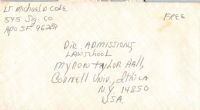 LT MICHAEL D COLE
545 Sig CO
APO SF 96289
FREE
Dir, Admissions
LAW School
Myron Taylor Hall,
Cornell Univ., Ithica
N.Y. 14850
U.S.A.